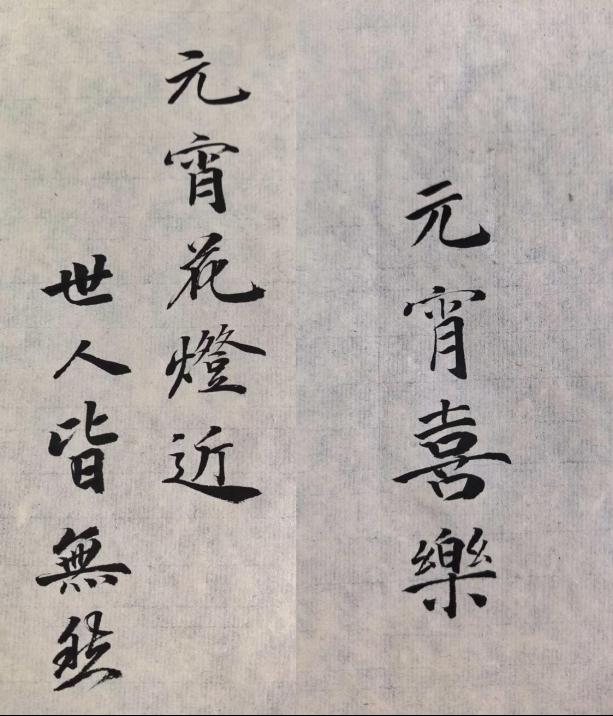 元宵喜樂
元宵花燈近
世人皆無愁